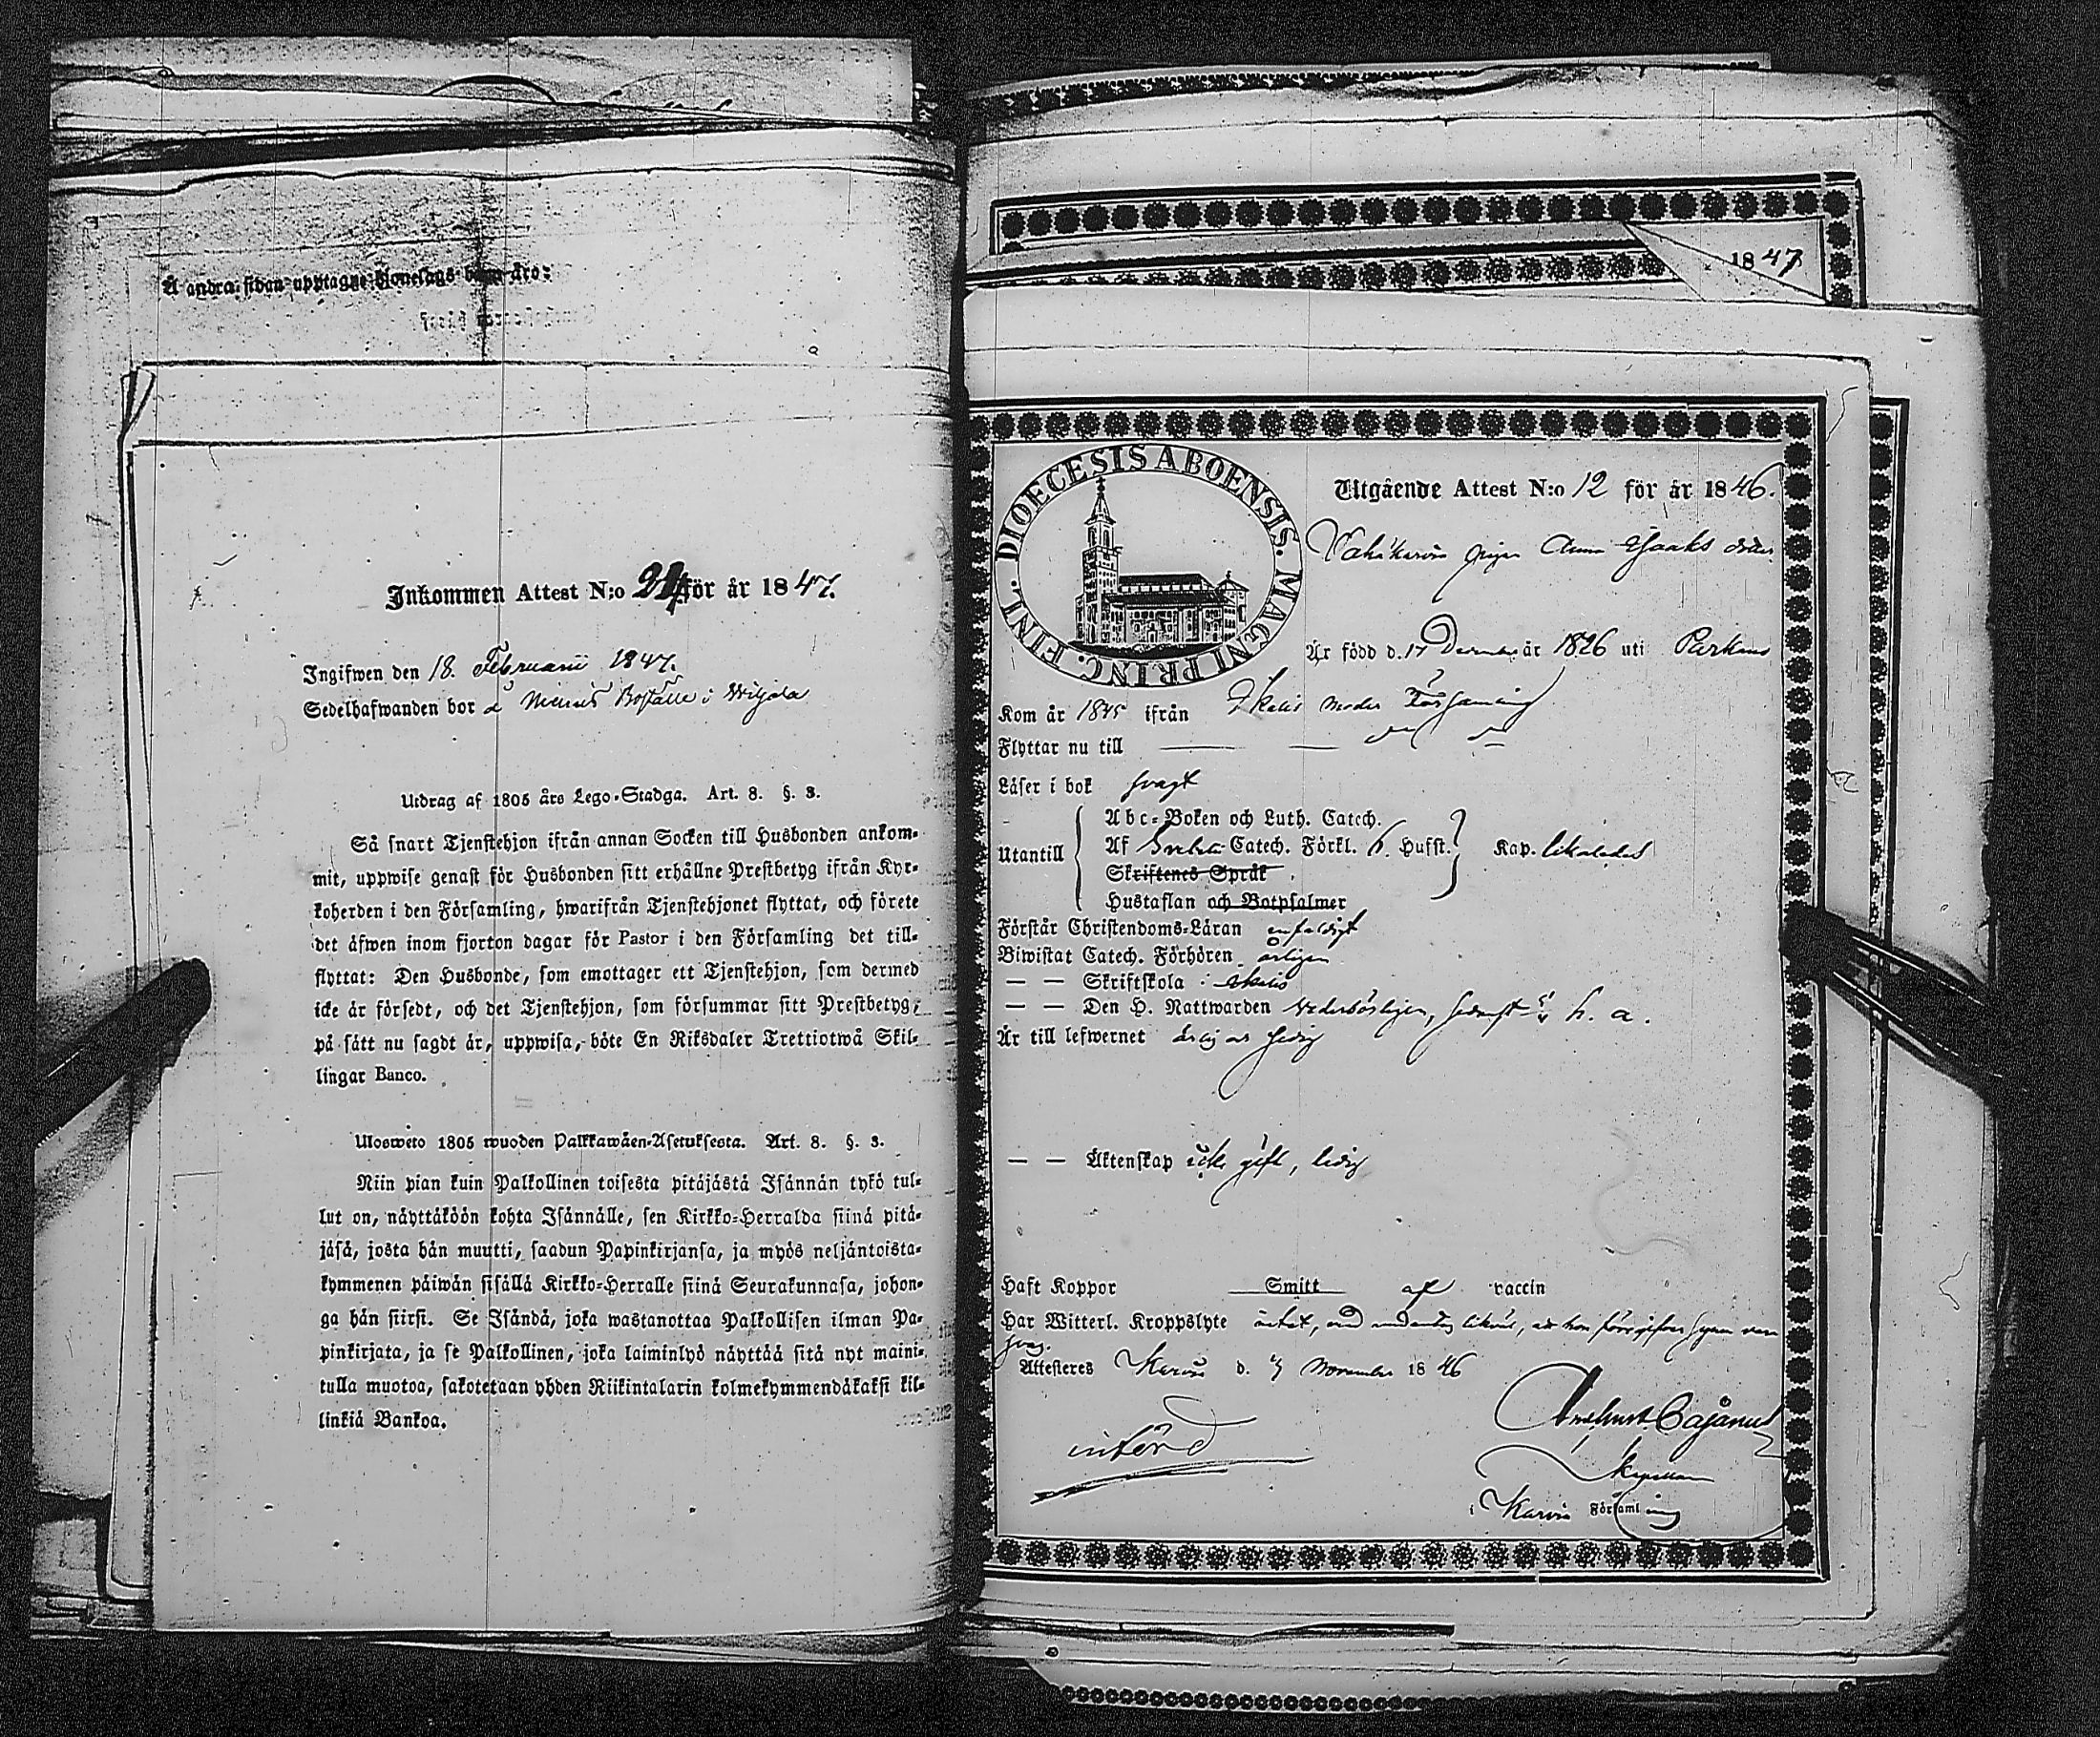 Å andra sidan upptagne Hionelags barn äro:
Inkommen Attest N:o 24 för år 1847.
Ingifwen den 18. Februarii 1847.
Sedelhafwanden bor å Boställe i
Utdrag af 1805 års Lego-Stadga. Art. 8. §. 3.
Så snart Tjenstehjon ifrån annan Socken till Husbonden ankom-
mit, uppwise genast för Husbonden sitt erhållne Prestbetyg ifrån Kyr-
koherden i den Församling, hwarifrån Tjenstehjonet flyttat, och förete
det äfwen inom fjorton dagar för Pastor i den Församling det till-
flyttat: Den Husbonde, som emottager ett Tjenstehjon, som dermed
icke är försedt, och det Tjenstehjon, som försummar sitt Prestbetyg,
på sätt nu sagdt är, uppwisa, böte En Riksdaler Trettiotwå Skil-
lingar Banco.
Ulosweto 1805 wuoden Palkkawäen-Asetuksesta. Art. 8. §. 3.
Niin pian kuin Palkollinen toisesta pitäjästä Isännän tykö tul-
lut on, näyttäköön kohta Isännälle, sen Kirkko-Herralda siinä pitä-
jäsä, josta hän muutti, saadun Papinkirjansa, ja myös neljäntoista-
kymmenen päiwän sisällä Kirkko-Herralle siinä Seurakunnasa, johon-
ga hän siirsi. Se Isändä, joka wastanottaa Palkollisen ilman Pa-
pinkirjata, ja se Palkollinen, joka laiminlyö näyttää sitä nyt maini-
tulla muotoa, sakotetaan yhden Riikintalarin kolmekymmendäkaksi kil-
linkiä Bankoa.
1847
DIOECESIS ABOENSIS. MAGNI PRINC. FINL.
Utgående Attest N:o 12 för år 1846.
pigan Anna Isaaks dotter
Är född d. 17 December år 1826 uti Parkano
Kom år 1845 ifrån Ikalis moder Församling
Flyttar nu till
Läser i bok svagt
Utantill
Abc-Boken och Luth. Catech.
Af Svebelii Catech. Förkl. 6. Hufst. Kap. likaledes
Skriftenes Språk
Hustaflan och Botpsalmer
Förstår Christendoms-Läran enfaldigt
Biwistat Catech. Förhören årligen
— — Skriftskola i Ikalis
— — Den H. Nattwarden vederbörligen, h. a.
Är till lefwernet
— — Äktenskap icke gift, ledig
Haft Koppor Smitt af vaccin
Har Witterl. Kroppslyte intet,
svag.
Attesteres Karvia d. November 1846
införd
Cajanus
Kapellan
i Karvia Församling